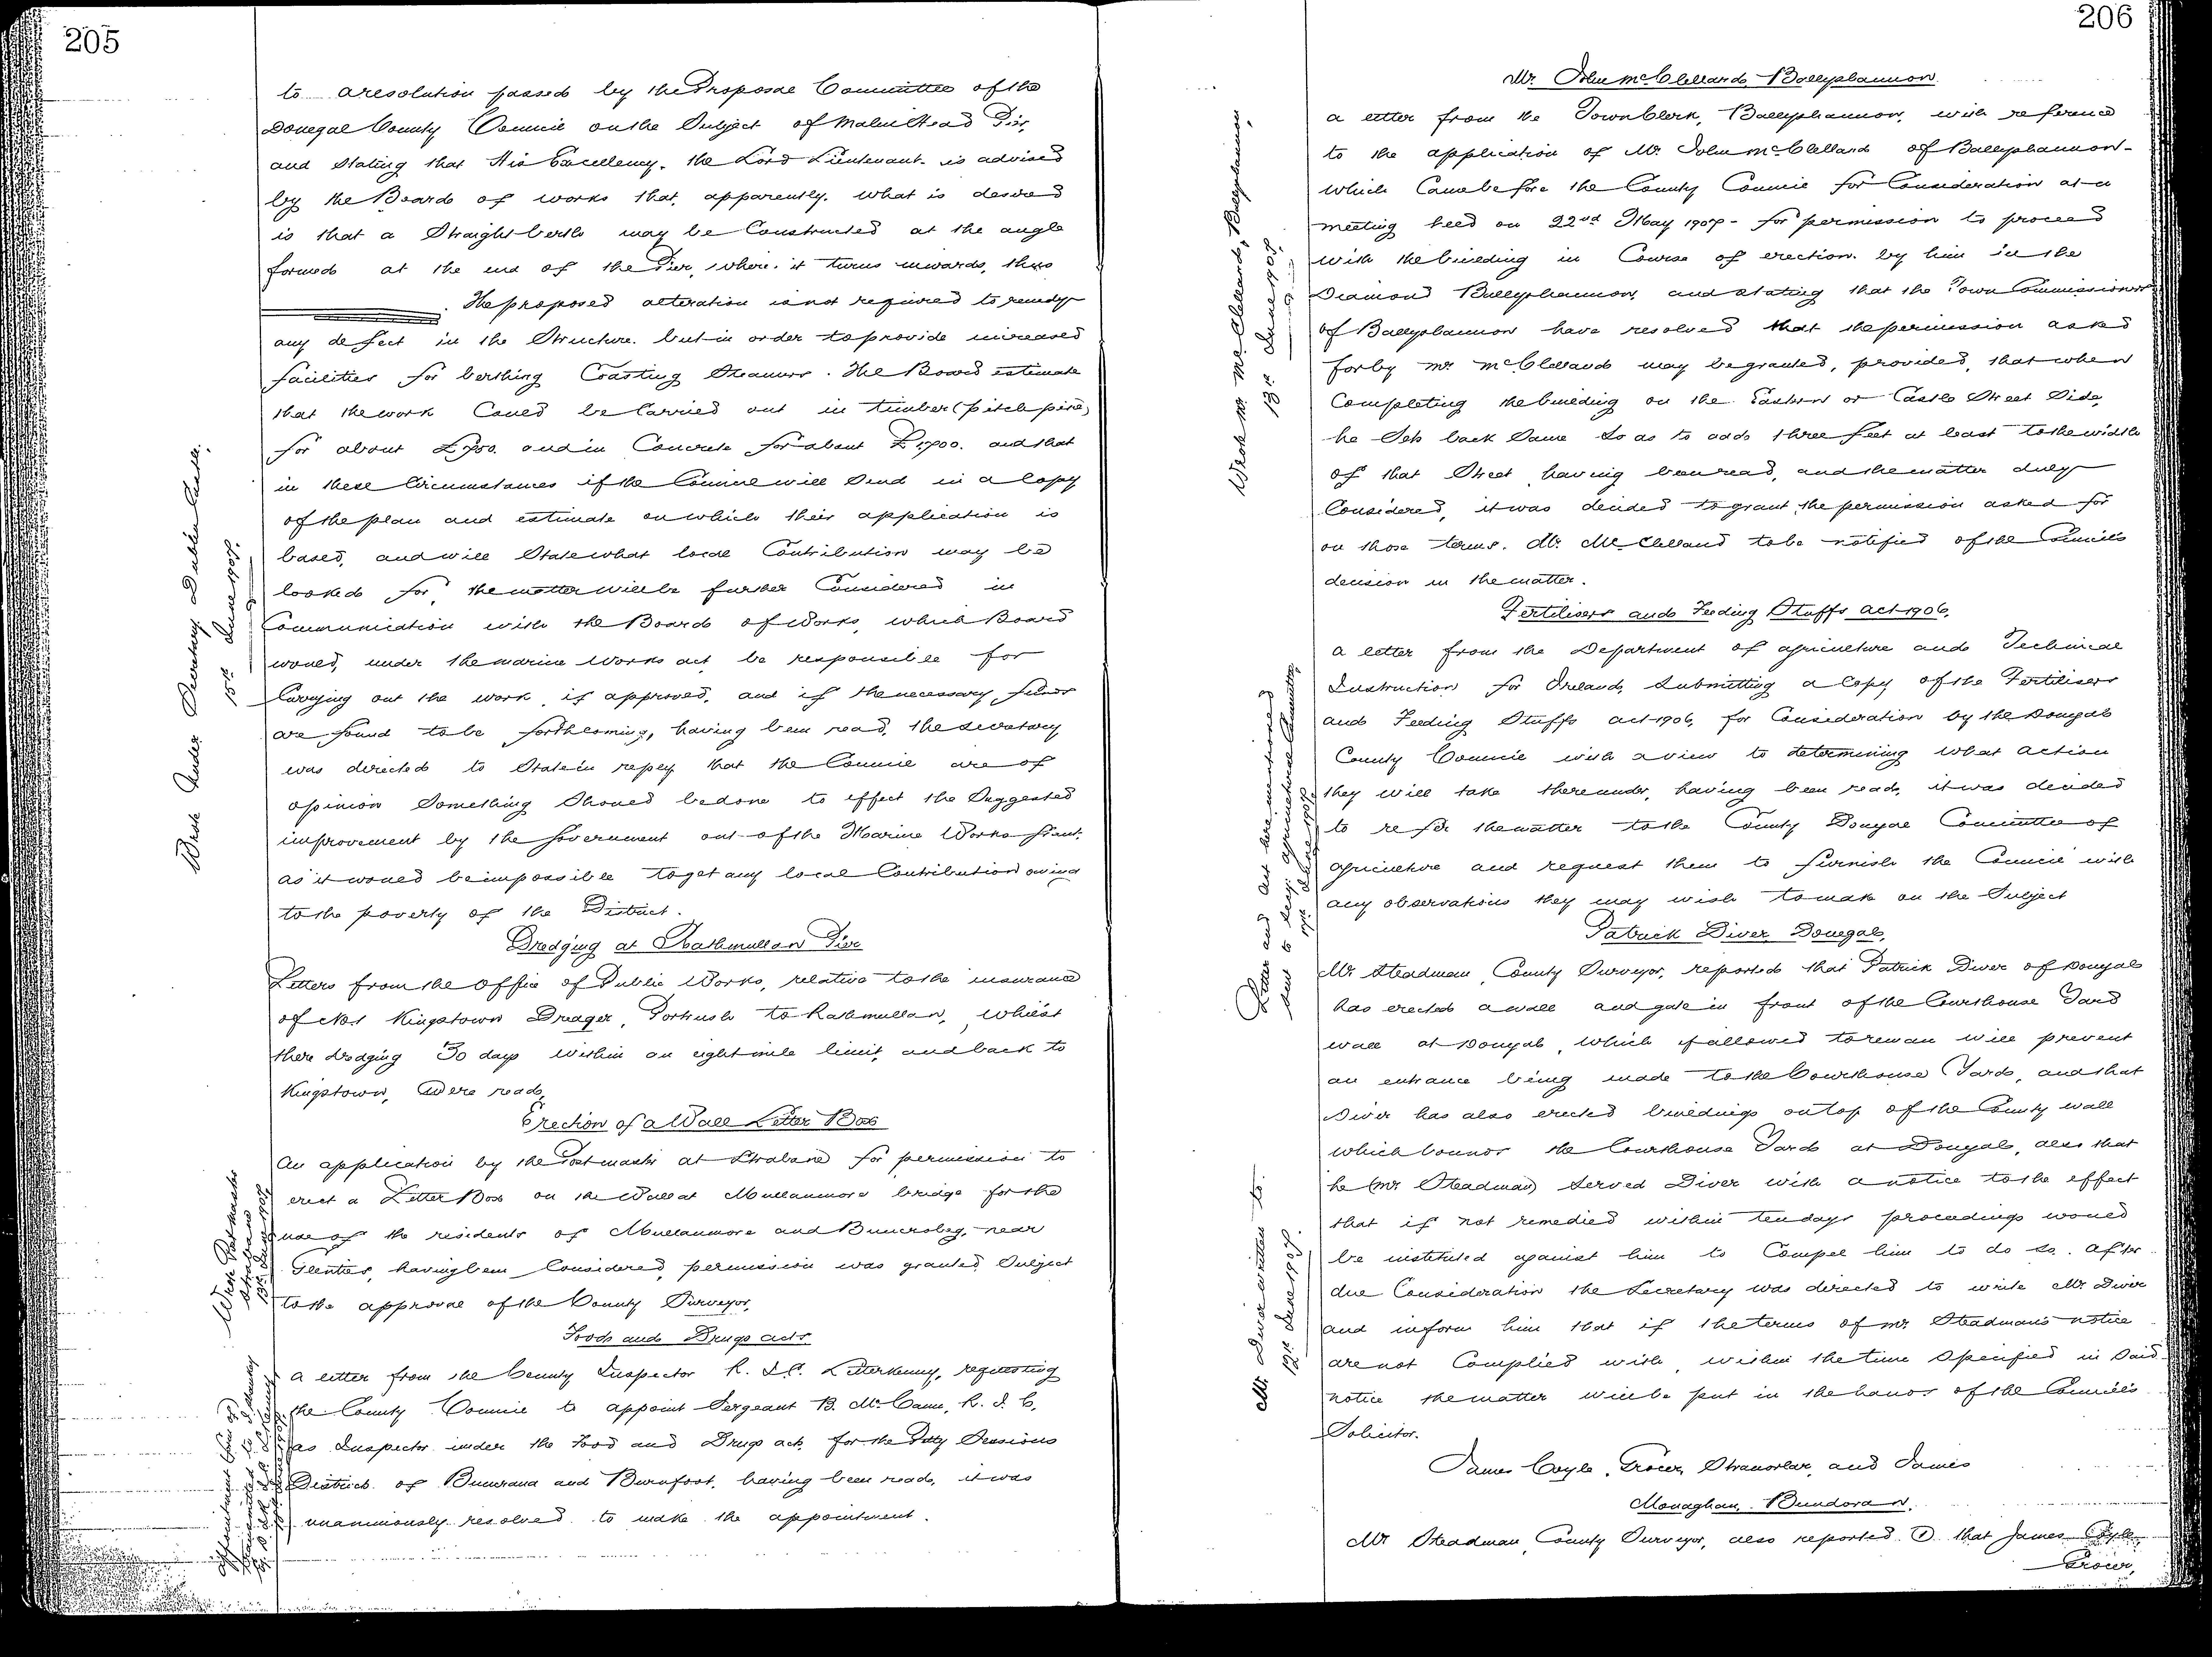 205
to a resolution passed by the Proposal Committee of the
Donegal County Council on the Subject of Malin Head Pier,
and Stating that His Excellency, the Lord Lieutenant is advised
by the Board of works that, apparently, what is desired
is that a Straight berth may be Constructed at the angle
formed at the end of the Pier, where it turns inwards, thus
The proposed alteration is not required to remedy
any defect in the Structure, but in order to provide increased
facilities for berthing Coasting Steamers. The Board estimate
that the work Could be Carried out in timber (pitch pine)
for about and in Concrete for about and that
in these Circumstances if the Council will Send in a Copy
of the plan and estimate on which their application is
based, and will State what local Contribution may be
looked for, the matter will be further Considered in
Communication with the Board of Works, which Board
would, under the marine works act, be responsible for
Carrying out the work, if approved, and if the necessary funds
are found to be forthcoming, having been read, the Secretary
was directed to State in reply that the Council are of
opinion Something Should be done to effect the Suggested
improvement by the Government out of the Marine Works Grant,
as it would be impossible to get any local Contribution owing
to the poverty of the District.
Wrote Under Secretary Dublin Castle,
15th June 1907.
Dredging at Rathmullan Pier
Letters from the Office of Public Works, relative to the insurance
of No 1 Kingstown Dredger, Portrush to Rathmullan, whilst
there dredging 30 days within an eight mile limit, and back to
Kingstown, were read.
Erection of a Wall Letter Box
An application by the Postmaster at Strabane for permission to
erect a Letter Box on the Wall at Mullanmore bridge for the
use of the residents of Mullanmore and near
Glenties, having been Considered, permission was granted Subject
to the approval of the County Surveyor.
Wrote Postmaster
Strabane
13th June 1907.
Food and Drugs acts
A letter from the County Inspector R. I. C. Letterkenny, requesting
the County Council to appoint Sergeant B. McCann, R. I. C.
as Inspector under the Food and Drugs act, for the Petty Sessions
Districts of Buncrana and Burnfoot, having been read, it was
unanimously resolved to make the appointment.
206
Mr. John McClelland, Ballyshannon.
A letter from the Town Clerk, Ballyshannon, with reference
to the application of Mr. John McClelland of Ballyshannon -
which Came before the County Council for Consideration at a
meeting held on 22nd May 1907 - for permission to proceed
with the building in Course of erection by him in the
Diamond Ballyshannon, and stating that the Town Commissioners
of Ballyshannon have resolved that the permission asked
for by Mr. McClelland may be granted, provided, that when
Completing the building on the Eastern or Castle Street Side,
he Sets back Same So as to add three feet at least to the width
of that Street, having been read, and the matter duly
Considered, it was decided to grant the permission asked for
on those terms. Mr. McClelland to be notified of the Council's
decision in the matter.
Wrote Mr. McClelland, Ballyshannon,
13th June 1907.
Fertilisers and Feeding Stuffs Act 1906.
A letter from the Department of Agriculture and Technical
Instruction for Ireland, Submitting a Copy of the Fertilisers
and Feeding Stuffs act 1906, for Consideration by the Donegal
County Council with a view to determining what action
they will take thereunder, having been read, it was decided
to refer the matter to the County Donegal Committee of
Agriculture and request them to furnish the Council with
any observations they may wish to make on the Subject
Letter and Act here mentioned
sent to Secy. Agricultural Committee,
June 1907.
Patrick Diver, Donegal,
Mr. Steadman, County Surveyor, reported that Patrick Diver of Donegal
has erected a wall and gate in front of the Courthouse Yard
wall at Donegal, which if allowed to remain will prevent
an entrance being made to the Courthouse Yard, and that
Diver has also erected buildings on top of the County wall
which bounds the Courthouse Yard at Donegal, also that
he (Mr. Steadman) Served Diver with a notice to the effect
that if not remedied within ten days proceedings would
be instituted against him to Compel him to do so. After
due Consideration the Secretary was directed to write Mr. Diver
and inform him that if the terms of Mr. Steadman's notice
are not Complied with, within the time Specified in Said
notice the matter will be put in the hands of the Council's
Solicitor.
Mr. Diver written to.
12th June 1907.
James Coyle, Grocer, Stranorlar, and James
Monaghan, Bundoran.
Mr Steadman, County Surveyor, also reported (1) that James Coyle,
Grocer,